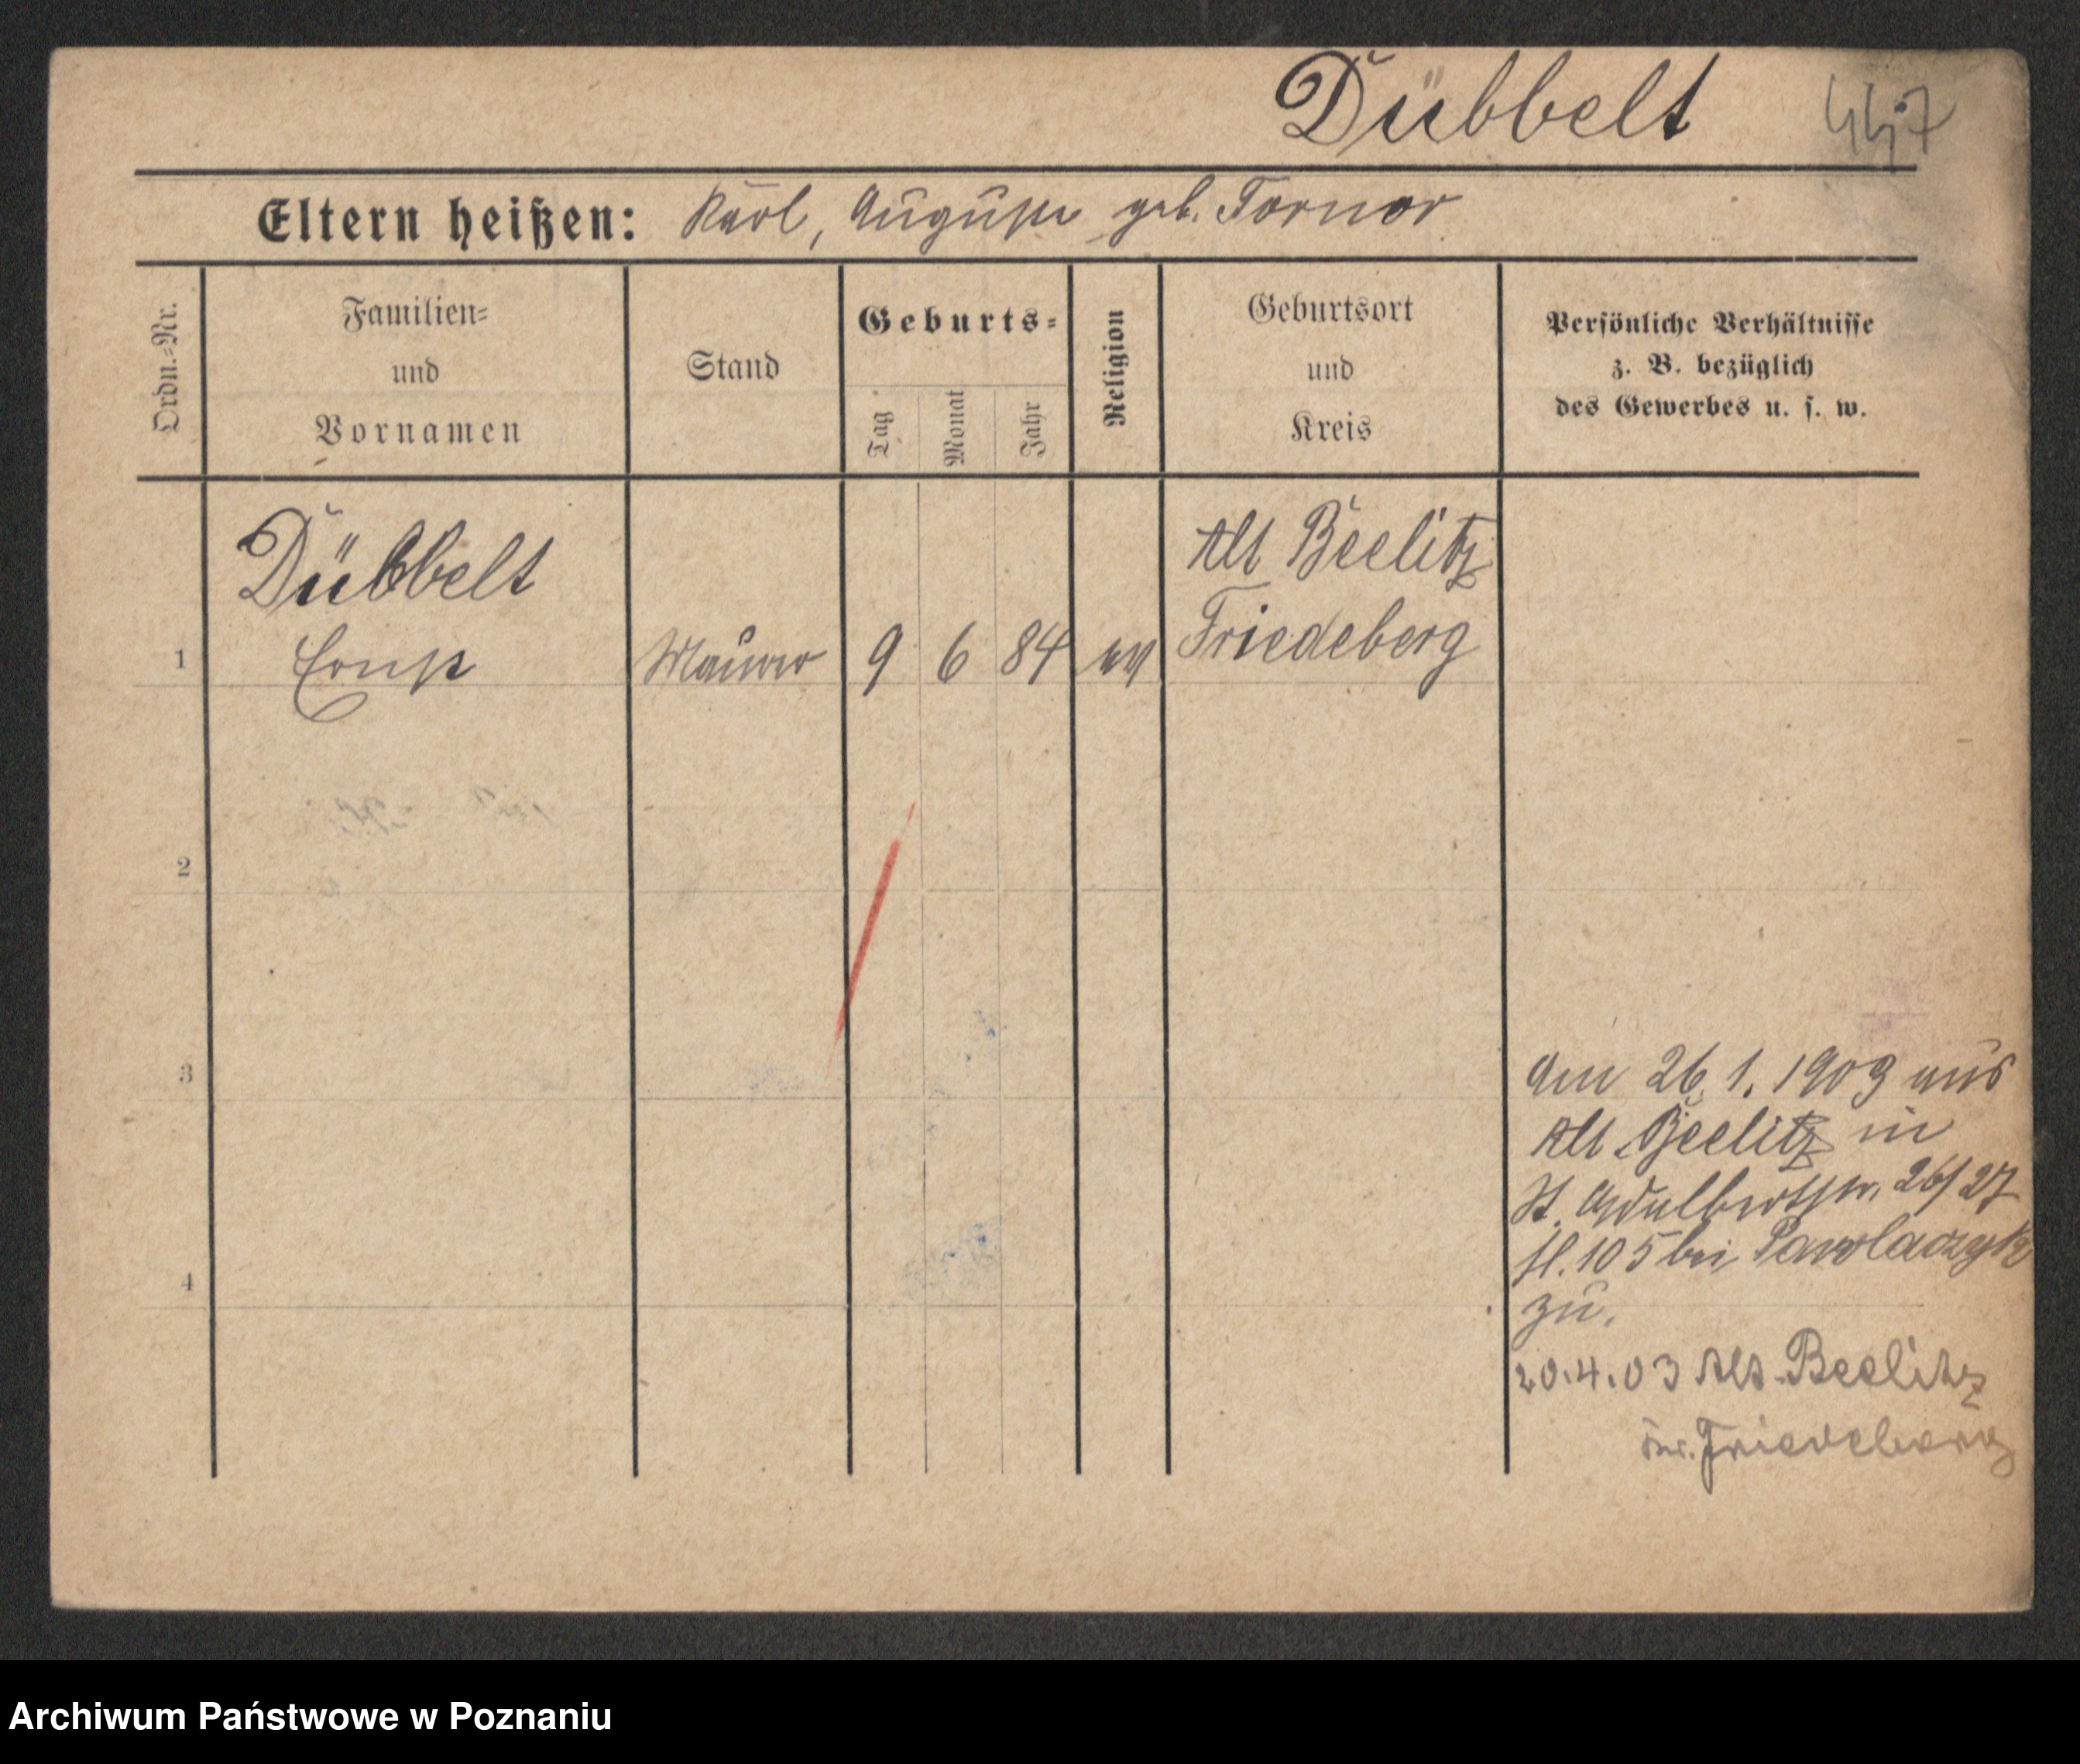 Dübbelt 447
Eltern heißen: Karl, Auguste geb. Tornow
Ordn.=Nr.
Familien=
und
Vornamen
Stand
Geburts=
Tag
Monat
Jahr
Religion
Geburtsort
und
Kreis
Persönliche Verhältnisse
z. B. bezüglich
des Gewerbes u. s. w.
Dübbelt
Alt Beelitz
1 Ernst Maurer 9 6 84 ev Friedeberg
2
3
4
Am 26.1.1903 aus
Alt Beelitz in
St. Adalbertstr. 26/27
fl. 105 bei Pawlaczyk
zu.
20.4.03 Alt-Beelitz
Friedeberg
Archiwum Państwowe w Poznaniu